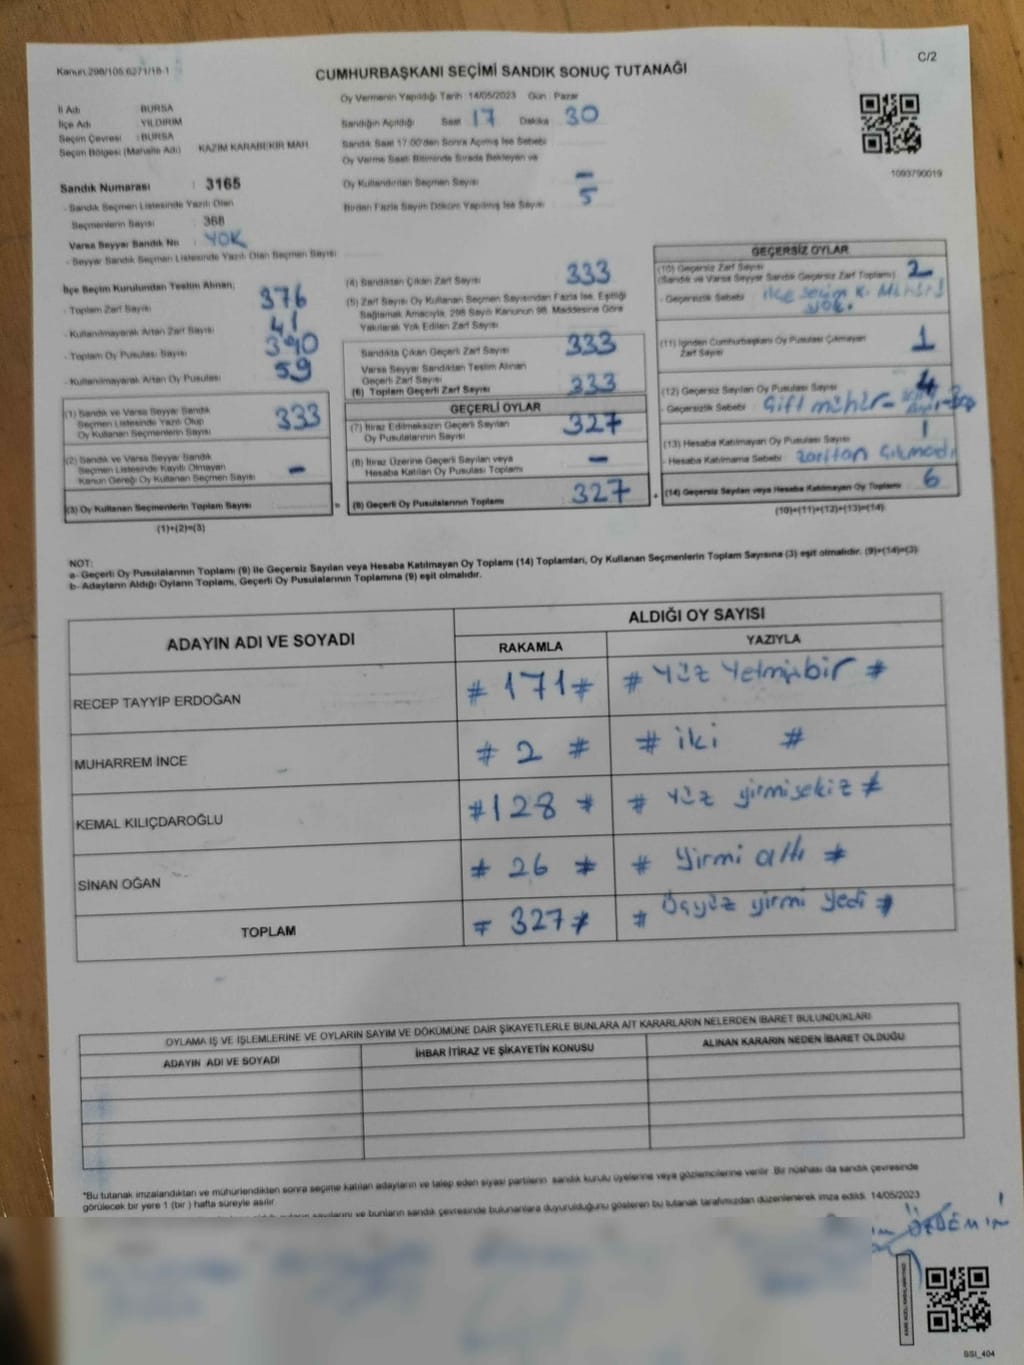 Kanun:298/105.6271/18-1
C/2
CUMHURBAŞKANI SEÇİMİ SANDIK SONUÇ TUTANAĞI
Oy Vermenin Yapıldığı Tarih :14/05/2023 Gün : Pazar
İl Adı : BURSA
İlçe Adı : YILDIRIM
Seçim Çevresi : BURSA
Seçim Bölgesi (Mahalle Adı) KAZIM KARABEKİR MAH
Sandığın Açıldığı Saat 17 Dakika 30
Sandık Saat 17:00'den Sonra Açılmış İse Sebebi
Oy Verme Saati Bitiminde Sırada Bekleyen ve
Oy Kullandırılan Seçmen Sayısı -
Birden Fazla Sayım Döküm Yapılmış İse Sayısı 5
1093790019
Sandık Numarası : 3165
- Sandık Seçmen Listesinde Yazılı Olan
Seçmenlerin Sayısı : 368
Varsa Seyyar Sandık No YOK
- Seyyar Sandık Seçmen Listesinde Yazılı Olan Seçmen Sayısı
İlçe Seçim Kurulundan Teslim Alınan;
- Toplam Zarf Sayısı 376
- Kullanılmayarak Artan Zarf Sayısı 41
- Toplam Oy Pusulası Sayısı 390
- Kullanılmayarak Artan Oy Pusulası 59
(1) Sandık ve Varsa Seyyar Sandık
Seçmen Listesinde Yazılı Olup
Oy Kullanan Seçmenlerin Sayısı 333
(2) Sandık ve Varsa Seyyar Sandık
Seçmen Listesinde Kayıtlı Olmayan
Kanun Gereği Oy Kullanan Seçmen Sayısı -
(3) Oy Kullanan Seçmenlerin Toplam Sayısı
(1)+(2)=(3)
(4) Sandıktan Çıkan Zarf Sayısı 333
(5) Zarf Sayısı Oy Kullanan Seçmen Sayısından Fazla İse, Eşitliği
Sağlamak Amacıyla, 298 Sayılı Kanunun 98. Maddesine Göre
Yakılarak Yok Edilen Zarf Sayısı
Sandıkta Çıkan Geçerli Zarf Sayısı 333
Varsa Seyyar Sandıktan Teslim Alınan
Geçerli Zarf Sayısı
(6) Toplam Geçerli Zarf Sayısı 333
GEÇERLİ OYLAR
(7) İtiraz Edilmeksizin Geçerli Sayılan
Oy Pusulalarının Sayısı 327
(8) İtiraz Üzerine Geçerli Sayılan veya
Hesaba Katılan Oy Pusulası Toplamı -
(9) Geçerli Oy Pusulalarının Toplamı 327
GEÇERSİZ OYLAR
(10) Geçersiz Zarf Sayısı
(Sandık ve Varsa Seyyar Sandık Geçersiz Zarf Toplamı) 2
- Geçersizlik Sebebi : ilçe seçim K. Mührü
yok.
(11) İçinden Cumhurbaşkanı Oy Pusulası Çıkmayan
Zarf Sayısı 1
(12) Geçersiz Sayılan Oy Pusulası Sayısı 4
- Geçersizlik Sebebi : Çift mühür -
(13) Hesaba Katılmayan Oy Pusulası Sayısı 1
- Hesaba Katılmama Sebebi : zarftan çıkmadı
(14) Geçersiz Sayılan veya Hesaba Katılmayan Oy Toplamı 6
(10)+(11)+(12)+(13)=(14)
NOT:
a- Geçerli Oy Pusulalarının Toplamı (9) İle Geçersiz Sayılan veya Hesaba Katılmayan Oy Toplamı (14) Toplamları, Oy Kullanan Seçmenlerin Toplam Sayısına (3) eşit olmalıdır. (9)+(14)=(3)
b- Adayların Aldığı Oyların Toplamı, Geçerli Oy Pusulalarının Toplamına (9) eşit olmalıdır.
ADAYIN ADI VE SOYADI
ALDIĞI OY SAYISI
RAKAMLA YAZIYLA
RECEP TAYYİP ERDOĞAN # 171 # # Yüz Yetmişbir #
MUHARREM İNCE # 2 # # iki #
KEMAL KILIÇDAROĞLU # 128 # # Yüz yirmisekiz #
SİNAN OĞAN # 26 # # Yirmi altı #
TOPLAM # 327 # # Üçyüz yirmi yedi #
OYLAMA İŞ VE İŞLEMLERİNE VE OYLARIN SAYIM VE DÖKÜMÜNE DAİR ŞİKAYETLERLE BUNLARA AİT KARARLARIN NELERDEN İBARET BULUNDUKLARI
ADAYIN ADI VE SOYADI İHBAR İTİRAZ VE ŞİKAYETİN KONUSU ALINAN KARARIN NEDEN İBARET OLDUĞU
*Bu tutanak imzalandıktan ve mühürlendikten sonra seçime katılan adayların ve talep eden siyasi partilerin sandık kurulu üyelerine veya gözlemcilerine verilir. Bir nüshası da sandık çevresinde
görülecek bir yere 1 (bir) hafta süreyle asılır.
ve bunların sandık çevresinde bulunanlara duyurulduğunu gösteren bu tutanak tarafımızdan düzenlenerek imza edildi. 14/05/2023
ÖZDEMİR
SSI_404